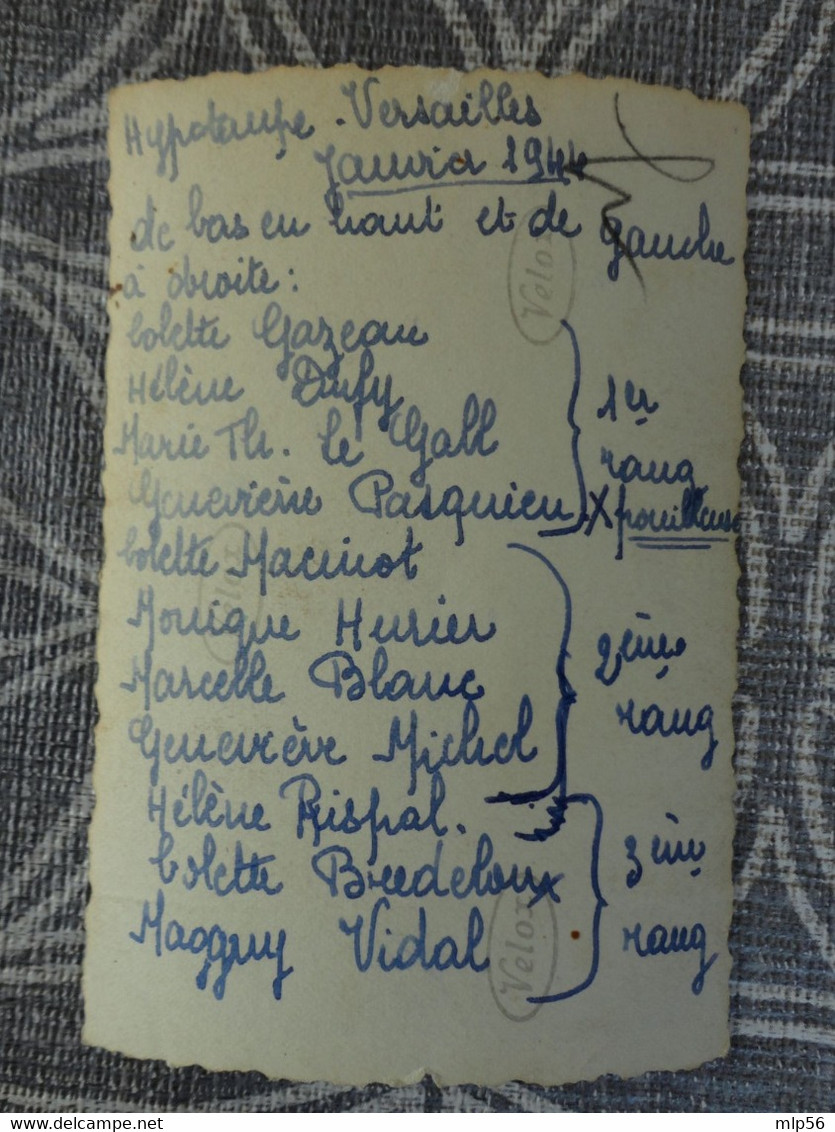 Hypotaupe. Versailles
Janvier 1944
de bas en haut et de gauche
à droite:
Colette Gazeau
Hélène Dufy
Marie Th. Le Gall
1er
rang
Geneviève Pasquieu X pouilleuse
Colette Macinot
Monique Hurier
Marcelle Blanc
2ème
rang
Geneviève Michel
Hélène Rispal.
Colette Bredeloux
3ème
rang
Magguy Vidal
Velox
Velox
Velox
delcampe.net
mlp56